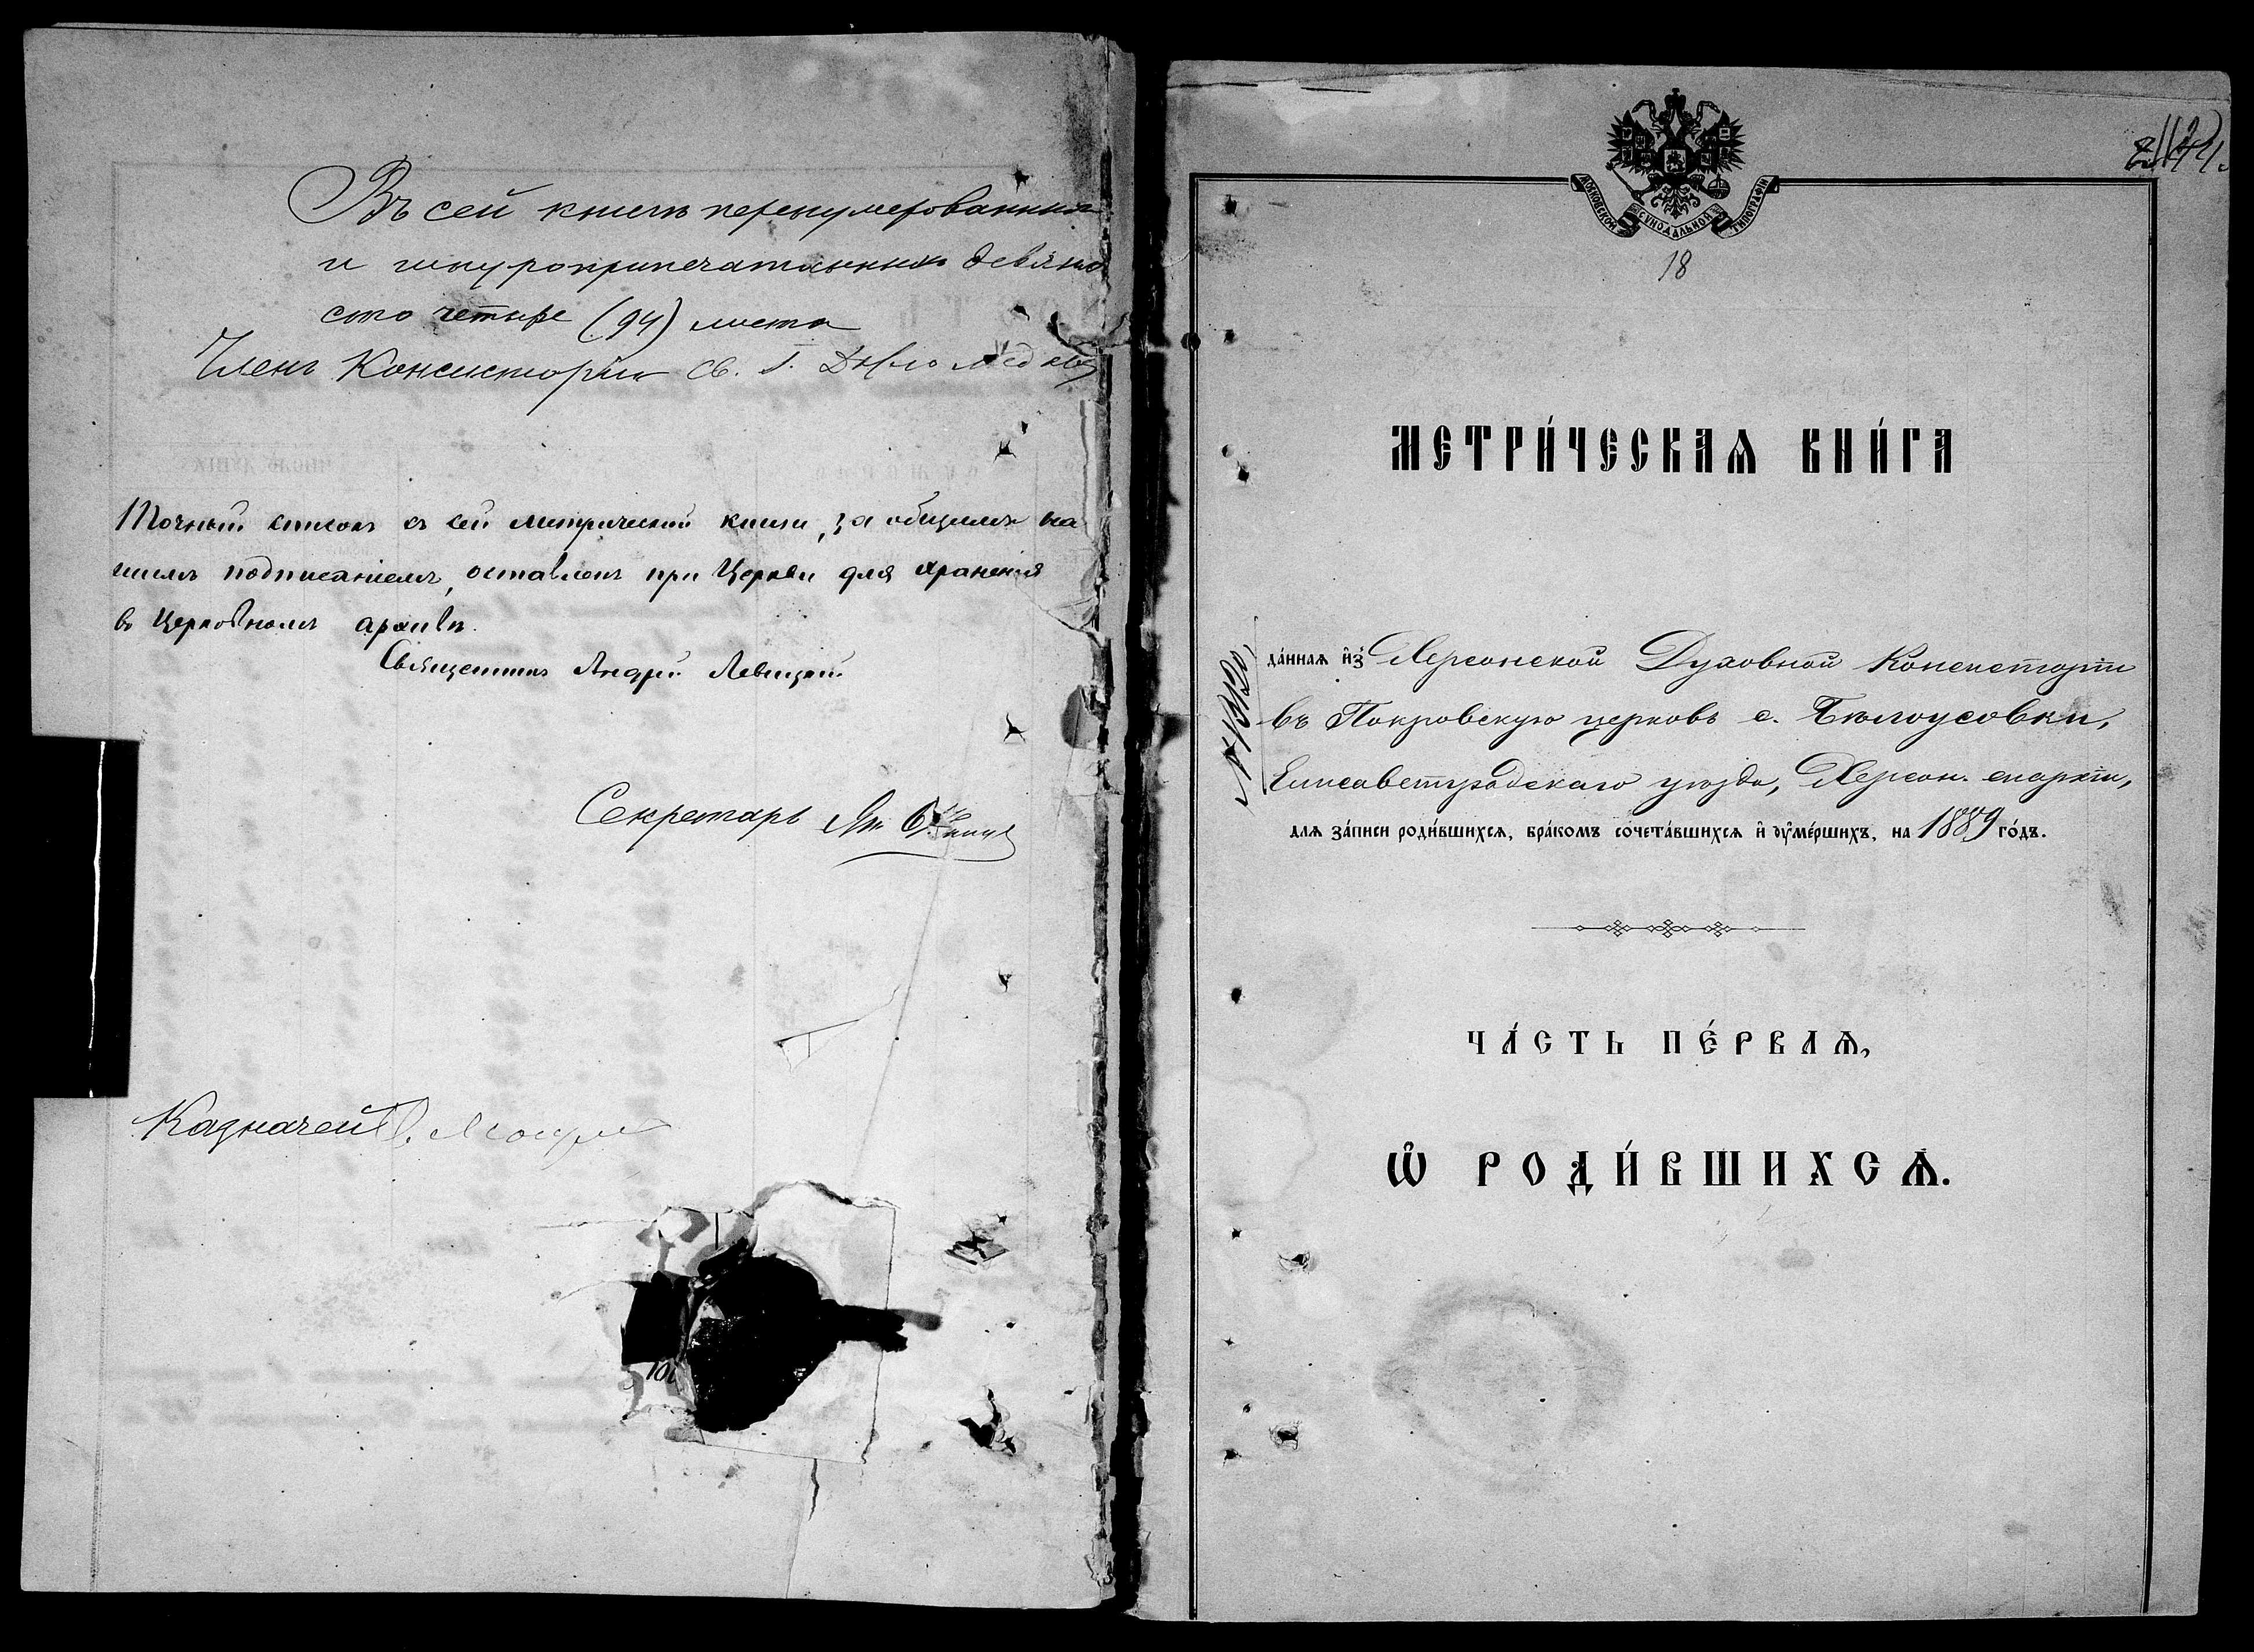 Въ сей книгѣ перенумерованныхъ
и шнуроприпечатанныхъ девяно
сто четыре (94) листа
Членъ Консисторіи Св. І.
Точный списокъ съ сей метрической книги, за общимъ на
шимъ подписаніемъ, оставленъ при Церкви для храненія
въ Церковномъ архивѣ.
Священникъ Андрей Левицкій
Секретарь
Казначей
МОСКОВСКОЙ СѴНОДАЛЬНОЙ ТИПОГРАФІИ
18
МЕТРИ́ЧЕСКАѦ КНИ́ГА
да́ннаѧ и҆з̾ Херсонской Духовной Консисторіи
въ Покровскую церковь с. Бѣлоусовки,
Елисаветградскаго уѣзда, Херсон. епархіи,
для за́писи роди́вшихсѧ, бра́комъ сочета́вшихсѧ и҆ ᲂу҆ме́ршихъ, на 1889 го́дъ.
ЧА́СТЬ ПЕ́РВАѦ,
Ѽ РОДИ́ВШИХСѦ.